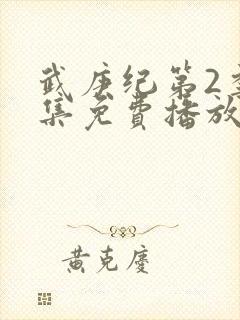 武庚纪第2季
集免费播放
黄克庆